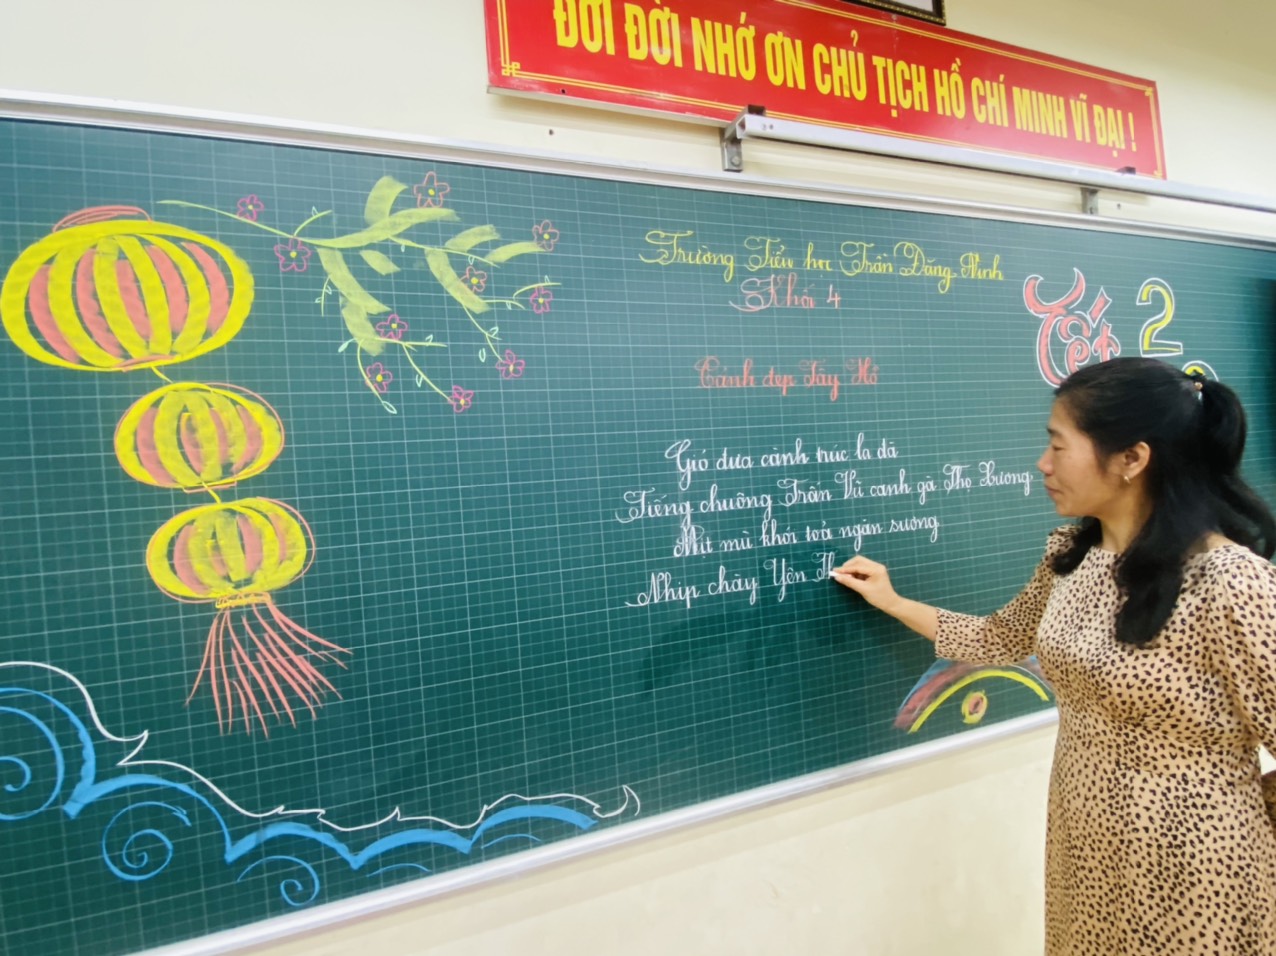 ĐỜI ĐỜI NHỚ ƠN CHỦ TỊCH HỒ CHÍ MINH VĨ ĐẠI !
Trường Tiểu học Trần Đăng Ninh
Khối 4
Tết 2
Cảnh đẹp Tây Hồ
Gió đưa cành trúc la đà
Tiếng chuông Trấn Vũ canh gà Thọ Xương
Mịt mù khói toả ngàn sương
Nhịp chày Yên Th